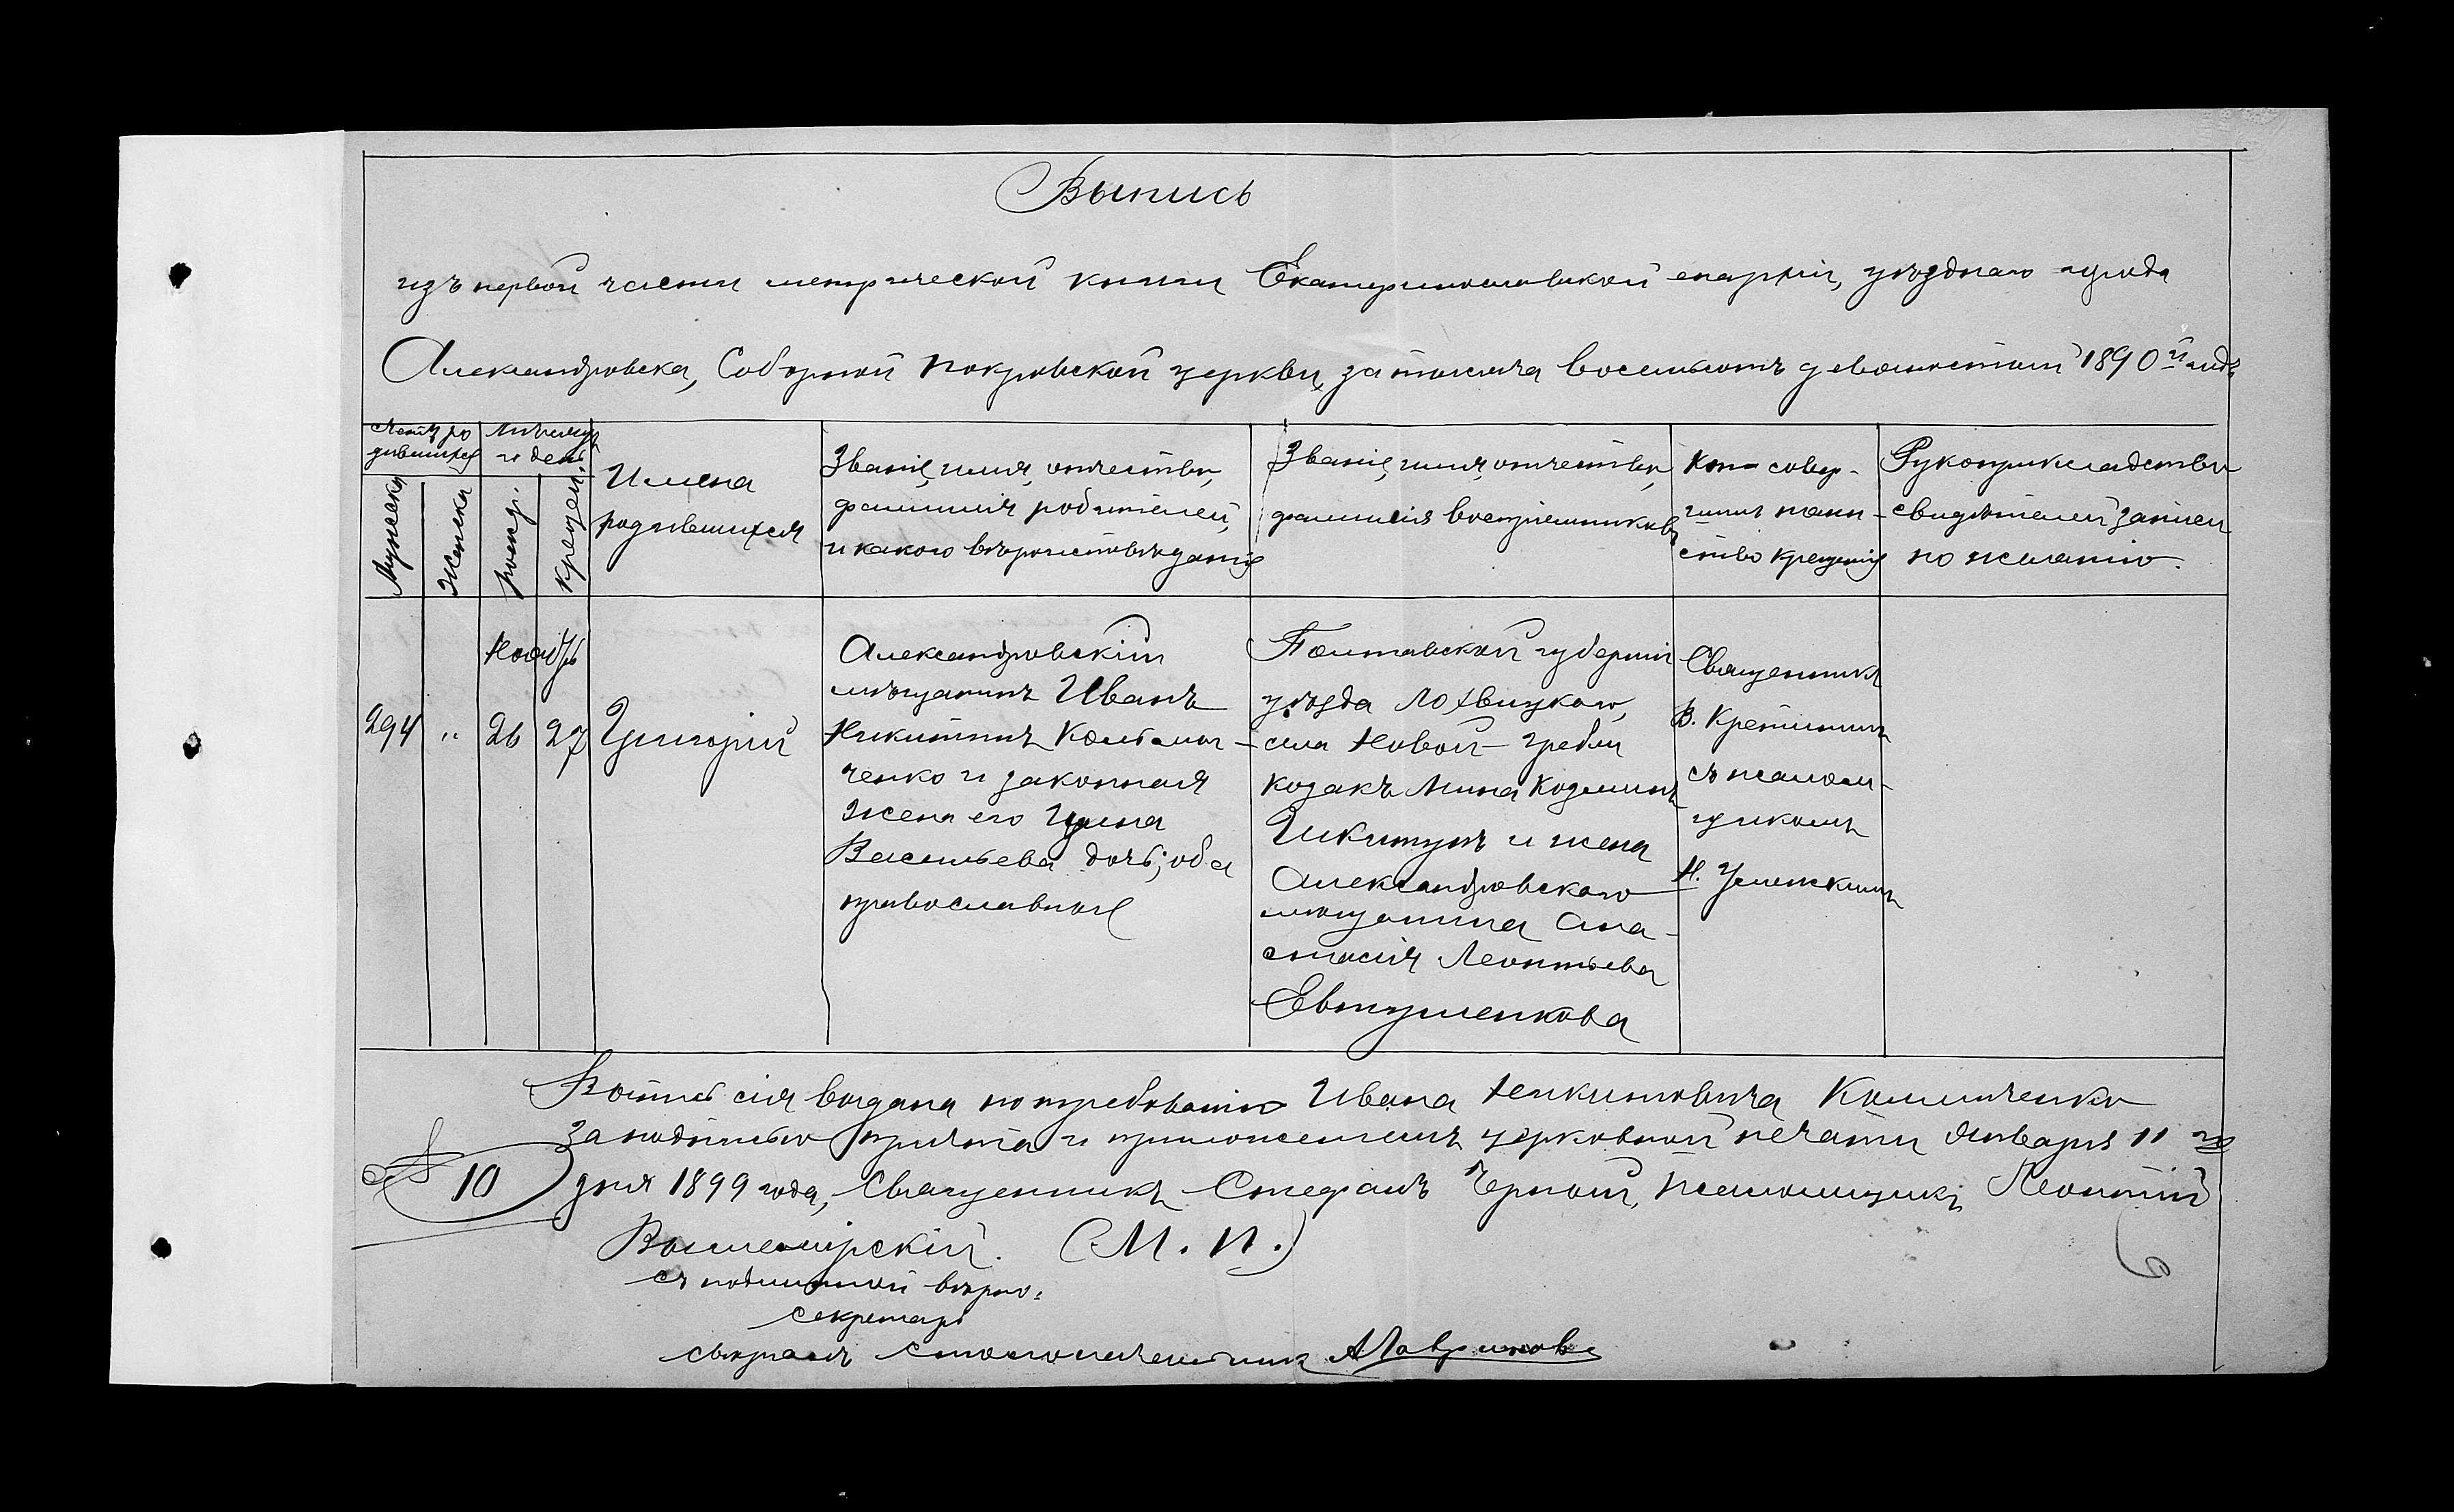 Выпись
изъ первой части метрической книги Екатеринославской епархіи, уѣзднаго города
Александровска, Соборной Покровской церкви, за тысяча восемьсотъ девяностый 1890й годъ
Счетъ ро
дившихся
Мужеска
Женска
Мѣсяцъ
и день
рожд.
крещен.
Имена
родившихся
Званіе, имя, отчество,
фамилія родителей,
и какого вѣроисповѣданія
Званіе, имя, отчество,
фамилія воспріемниковъ
Кто совер-
шилъ таин-
ство крещенія
Рукоприкладство
свидѣтелей записи
по желанію.
Ноябрь
294
"
26
27
Григорій
Александровскій
мѣщанинъ Иванъ
Никитинъ
ченко и законная
жена его Ирина
Васильева дочь; оба
православные
Полтавской губерніи
уѣзда Лохвицкаго,
села Новой-Гребли
козакъ Мина Козьминъ
Шкитунъ и жена
Александровскаго
мѣщанина Ана-
стасія Леонтьева
Евтушенкова
Священникъ
В. Крептининъ
съ псалом-
щикомъ
Н.
Выпись сія выдана по требованію Ивана Никитовича
за подписью причта и приложеніемъ церковной печати Января 11 го
№ 10
дня 1899 года, Священникъ Стефанъ Чорный, Псаломщикъ Леонтій
Вышемірскій. (М. П.)
6
Съ подлинной вѣрно:
Секретарь
Свѣрялъ Столоначальникъ АГавриловъ